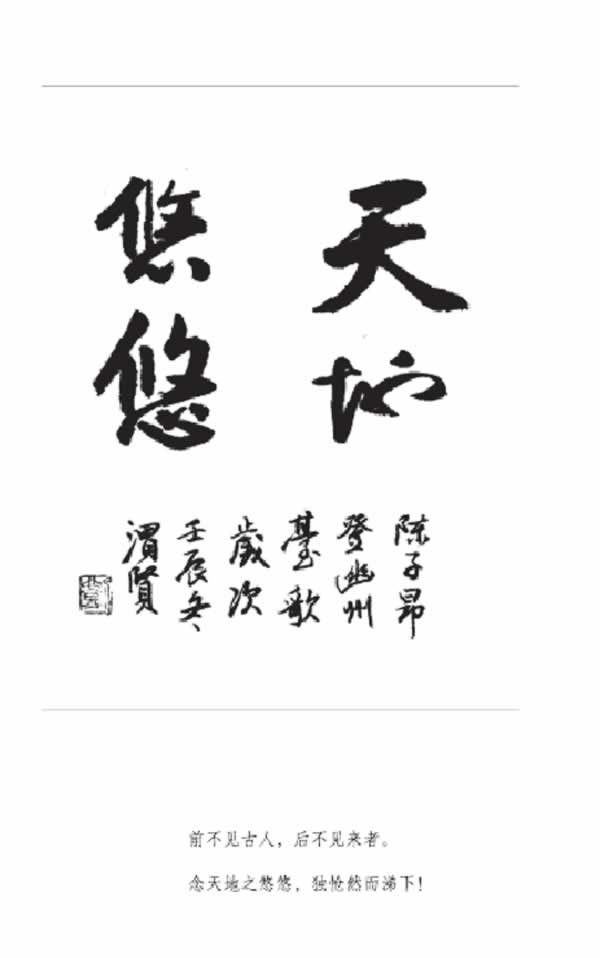 天地
悠悠
陈子昂
登幽州
臺歌
歲次
壬辰冬
渭賢
前不见古人，后不见来者。
念天地之悠悠，独怆然而涕下！